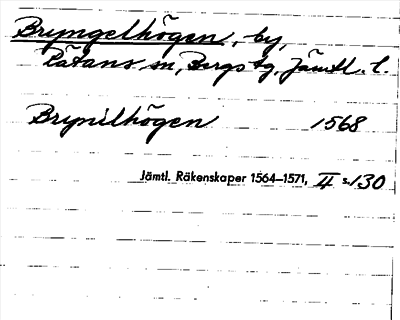 Bryngelhögen, by,
Råtans sn, Bergs tg, Jämtl. l.
Brynilhögen 1568
Jämtl. Räkenskaper 1564–1571, II s. 130